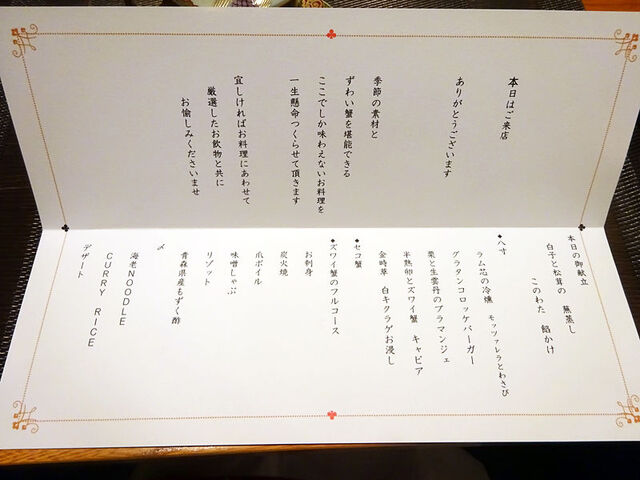 本日はご来店
ありがとうございます
季節の素材と
ずわい蟹を堪能できる
ここでしか味わえないお料理を
一生懸命つくらせて頂きます
宜しければお料理にあわせて
厳選したお飲物と共に
お愉しみくださいませ
本日の御献立
白子と松茸の　蕪蒸し
このわた　餡かけ
◆八寸
ラム芯の冷燻　モッツァレラとわさび
グラタンコロッケバーガー
栗と生雲丹のブラマンジェ
半熟卵とズワイ蟹　キャビア
金時草　白キクラゲお浸し
◆セコ蟹
◆ズワイ蟹のフルコース
お刺身
炭火焼
爪ボイル
味噌しゃぶ
リゾット
青森県産もずく酢
〆
海老NOODLE
CURRY RICE
デザート